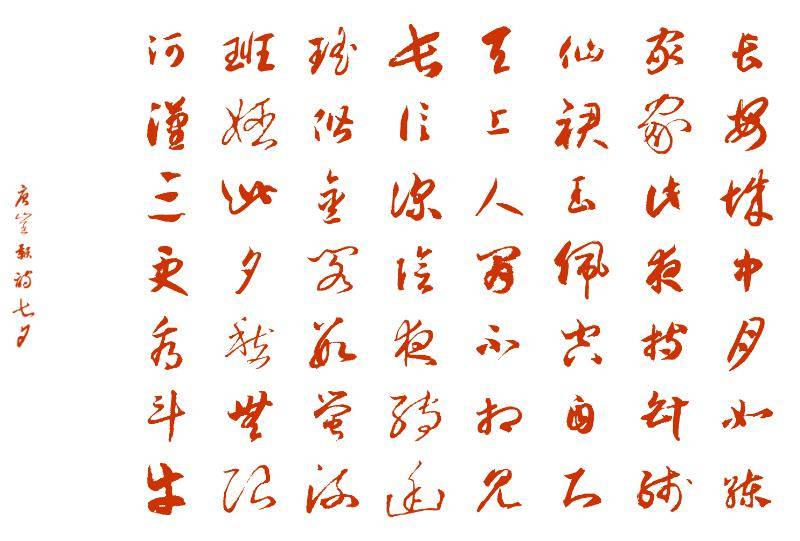 長安城中月如練
家家此夜持針線
仙裙玉佩空自知
天上人間不相見
長信深陰夜轉幽
瑤階金閣數螢流
班姬此夕愁無限
河漢三更看斗牛
唐崔顥詩七夕